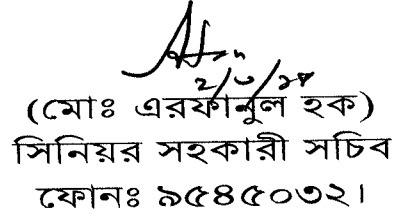 (মোঃ এরফানুল হক)
সিনিয়র সহকারী সচিব
ফোনঃ ৯৫৪৫০৩২।